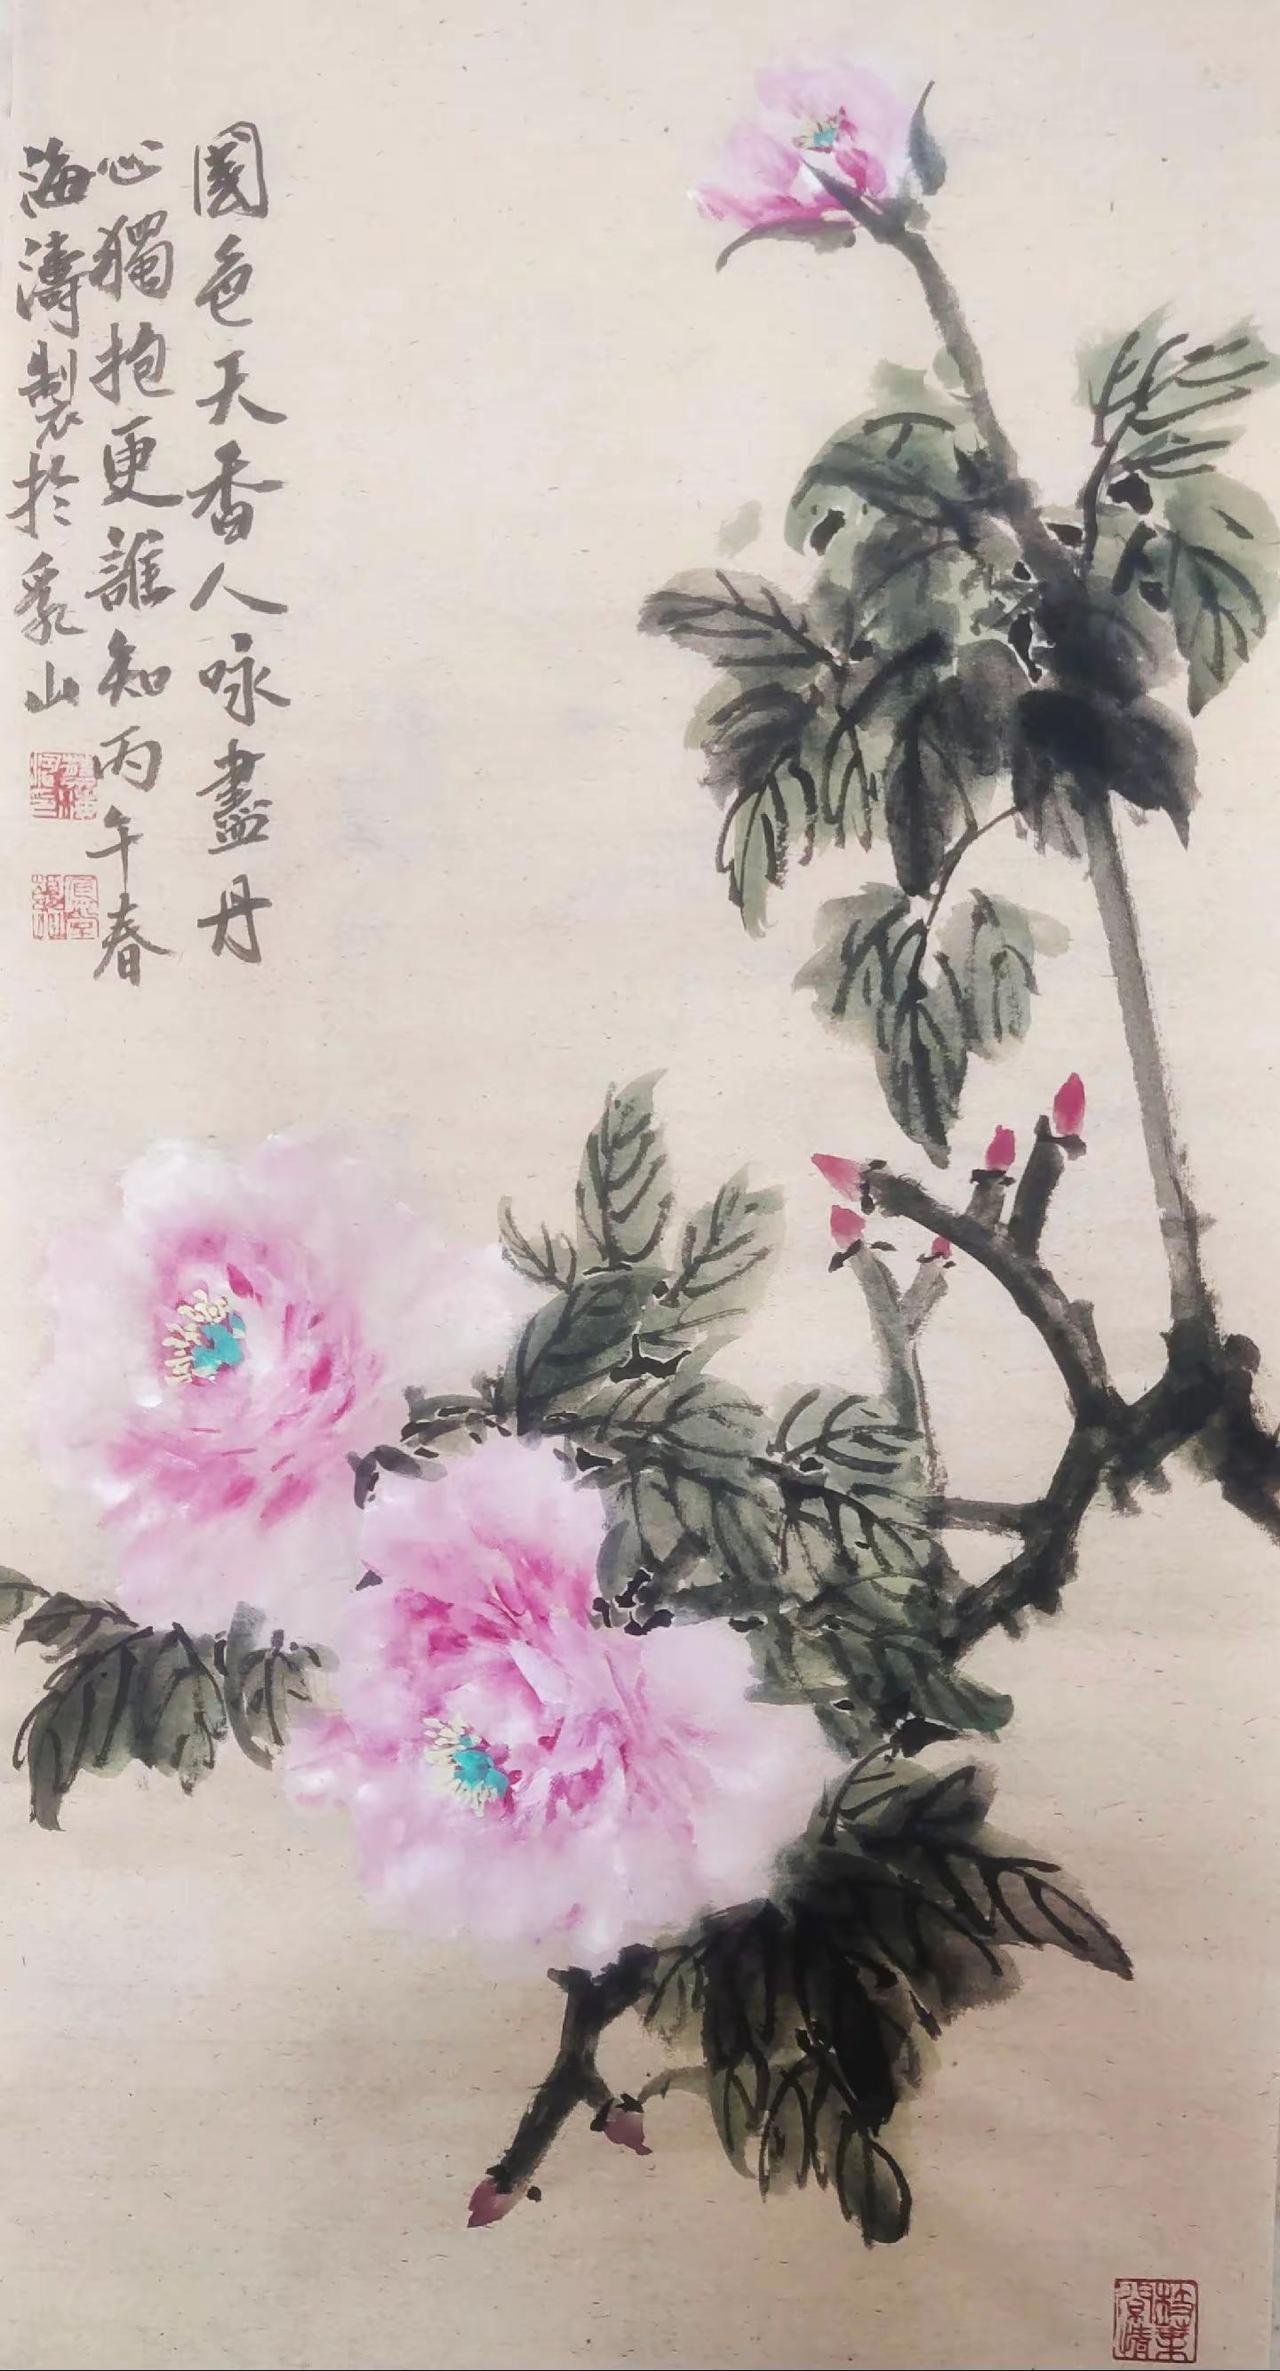 國色天香人咏盡丹
心獨抱更誰知丙午春
海濤製於乳山